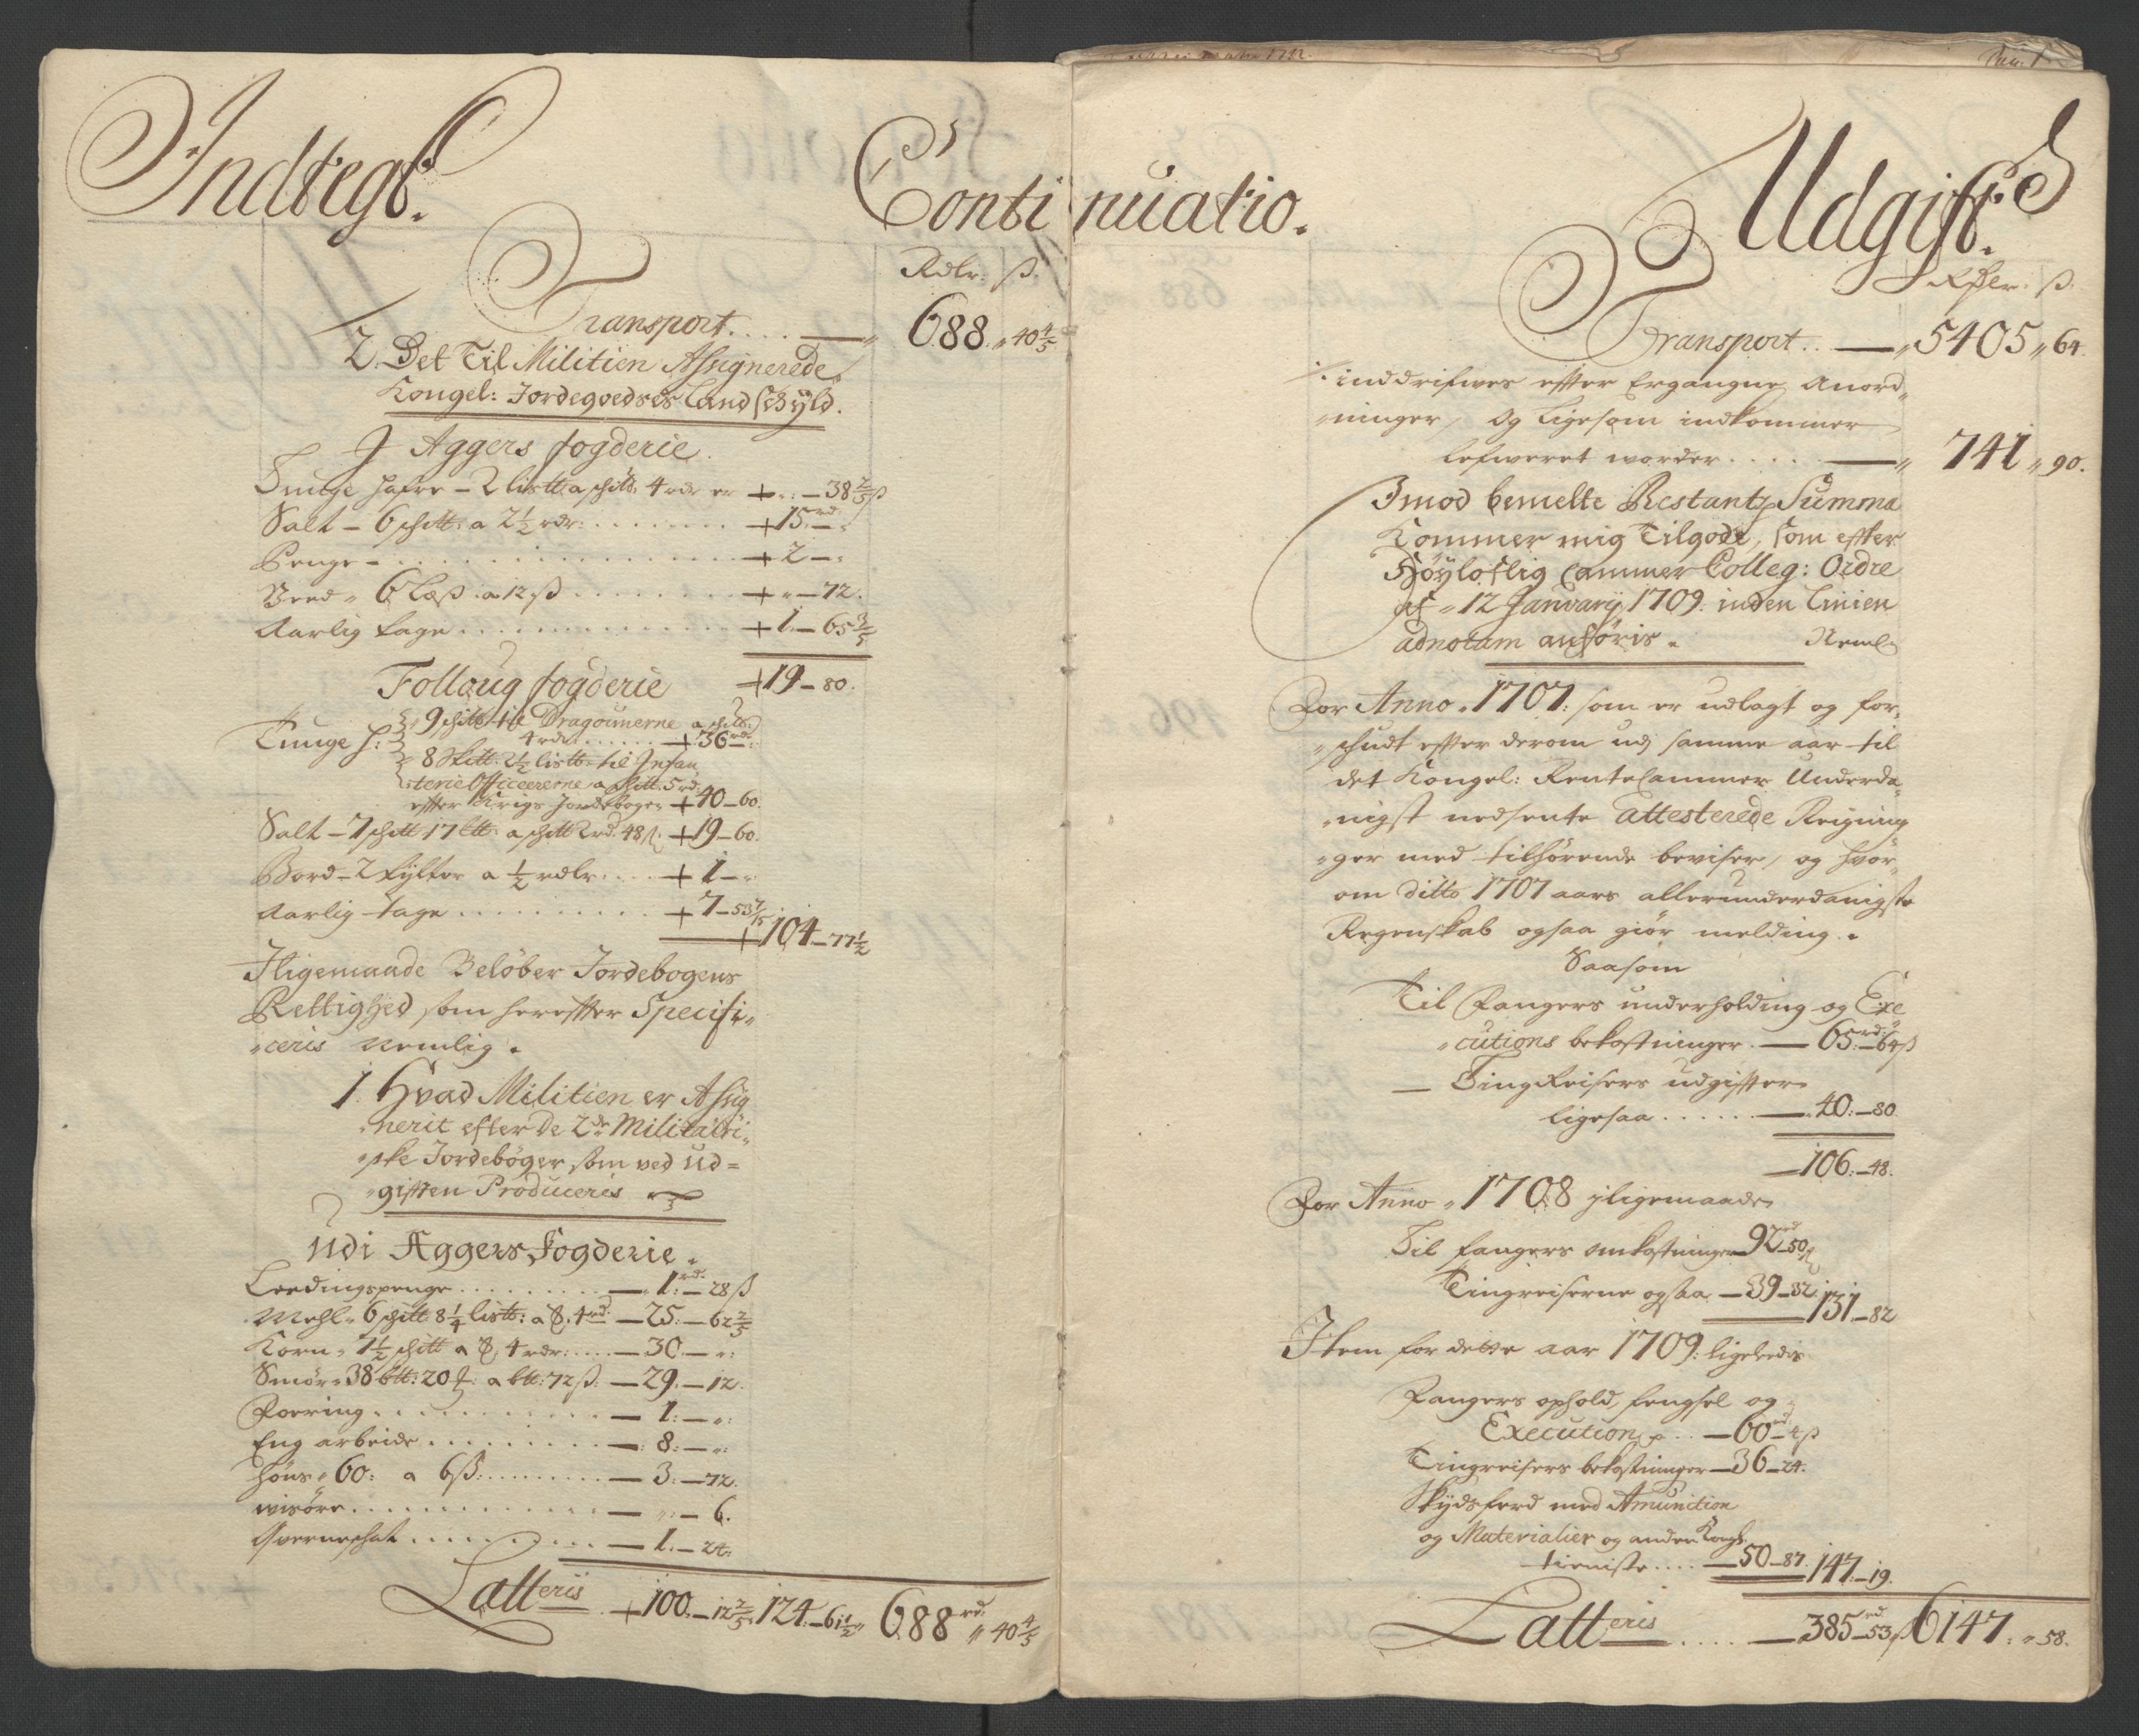 Indtegt.
Continuatio.
Rdlr: ß.
Transport. . . . — „ 688 „ 40 4/5
2. Det Til Militien Assignerede
Kongel: Jordegoedses Landschyld.
J Aggers fogderie.
Tunge hafre – 2 listt: a schit: 4 rdr er + „: – 38 2/5 ß
Salt – 6 schtt: a 2 1/2 rdr: . . . . . . . + 15 rd: – „
Penge – . . . . . . . . . . . . . . . + 2 – „
Veed „ 6 Læß: a 12 ß . . . . . . . . + „ – 72.
Aarlig tage . . . . . . . . . . . . . + 1. – 65 3/5
+ 19 – 80.
Folloug fogderie
Tunge h: 9 schtt: til Dragounerne a schtt:
4 rdr . . . . . . + 36 rd: – „:
8 Skitt: 2 1/2 listt: til Infan
„terie Officeererne a schtt: 5 rd:
efter Krigs Jordebogen + 40 – 60.
Salt – 7 schtt 17 ltt: a schtt 2 rd: 48 ß. + 19 – 60.
Bord – 2 tylter a 1/2 rdlr . . . . + 1 – „
Aarlig tage . . . . . . . . . . + 7 – 53 7/15
+ 104. – 77 1/2
Iligemaade Beløber Jordebogens
Rettighed som herefter Specifi„
„ceris Nemlig.
1. Hvad Militien er Assig
„nerit efter De 2de Militairi„
„ske Jordebøger som ved ud=
„giften Produceris
Udi Aggers Fogderie.
Leedingspenge . . . . . . . . . — 1: rd. – 28 ß
Mehl „ 6 schtt: 8 1/4 listt: a 4 rd: – 25: – 62 2/5
Korn „ 7 1/2 schtt a 4 rdr: . . . . – 30: – „:
Smør „ 38 btt: 20 a btt: 72 ß. – 29. – 12.
Foering . . . . . . . . . . . . – 1: – „:
Eng arbeide . . . . . . . . . –: 8: – „:
Høns „ 60: a 6 ß: . . . . . . . – 3: – 72.
wisøre . . . . . . . . . . . . . – „: – 6.
Qverneschat . . . . . . . . . . – 1. – 24:
Latteris . + 100. – 12 2/5. 124. – 61 1/2 „ 688 rd: „ 40 4/5
Udgift.
Rdler: ß.
Transport . . — „ 5405 „ 64.
inddrifwes efter Ergangne Anord„
„ninger, og ligesom indkommer
lefweret worder . . . . . — „ 741 „ 90.
Imod bemelte Restantz Summa
Kommer mig Tilgode, som efter
Høyloflig Cammer Colleg: Ordre
af „ 12 January 1709: inden Linien
adnotam anføris. Neml:
For Anno „ 1707: som er udlagt og for„
„schudt efter derom udj samme aar til
det Kongel: Rente Cammer Underda„
„nigst nedsente attesterede Reigning„
„ger med tilhørende beviser, og hvor„
om ditto 1707 aars allerunderdanigste
Regenskab ogsaa giør melding.
Saasom
Til Fangers underholding og Exe
„cutions bekostninger. — 65: rd: – 64 ß
— Ting Reisers udgifter
ligesaa . . . . . . — 40: – 80
– 106: – 48.
For Anno „ 1708 jligemaade
Til fangers omkostninger 92 rd – 50 ß
Tingreiserne ogsaa – 39 – 32. 131. – 82
Item for dette aar 1709: ligeledis
Fangers ophold, fengsel og
Execution . . – 60 rd: – 4 ß
Tingreisers bekostninger – 36 – 24.
Skydsferd med Amunition
og Materialier og anden Kongl:
tieniste . . . . — 50 – 87. 147. – 19.
Latteris . . . . . — 385 rd: – 53 ß 6147. „ 58.